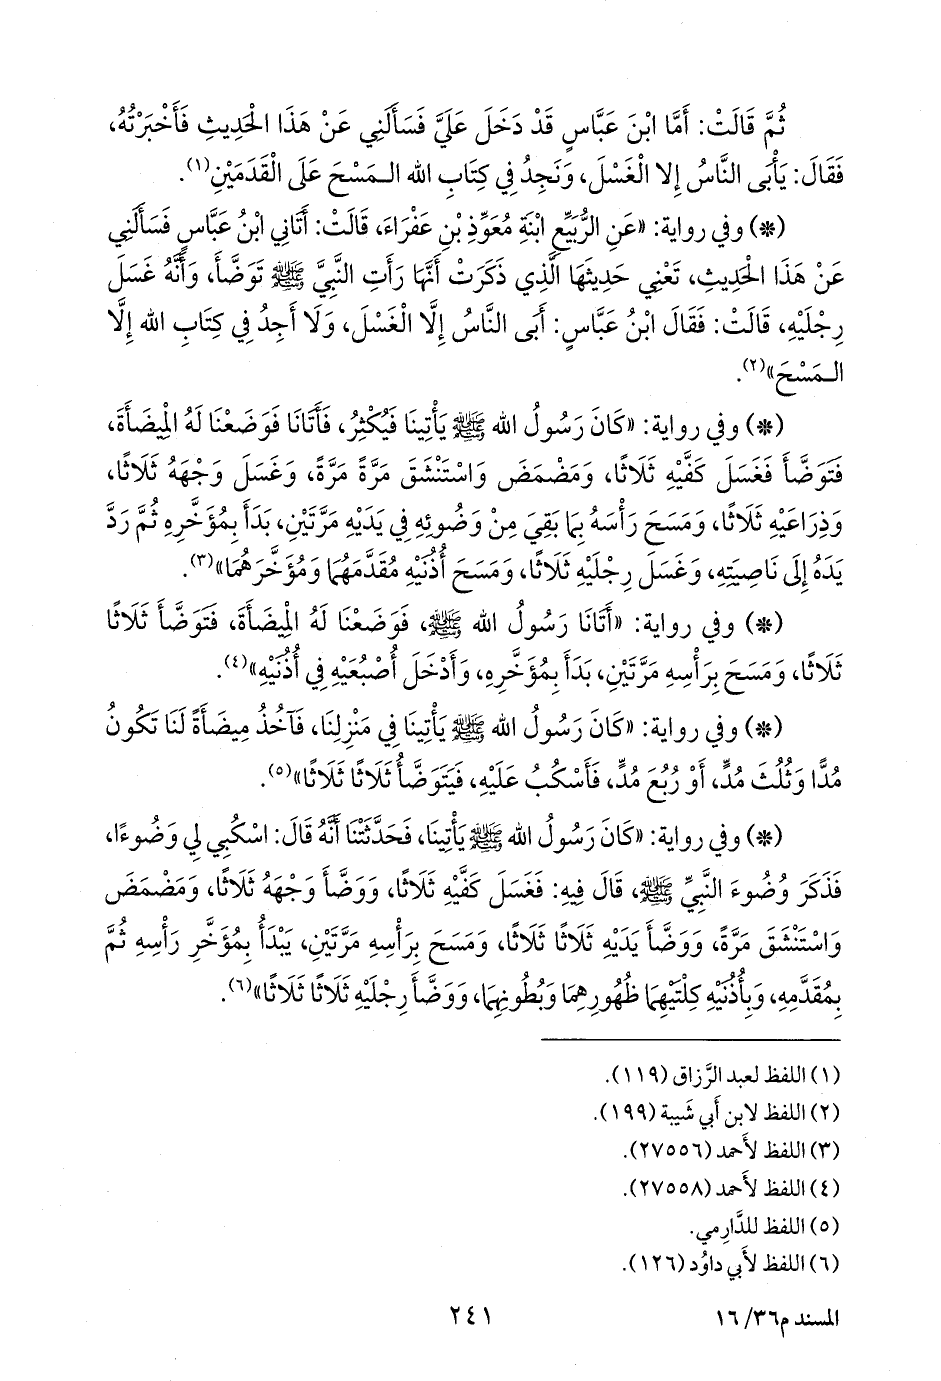 ثُمَّ قَالَتْ: أَمَّا ابْنَ عَبَّاسٍ قَدْ دَخَلَ عَلَيَّ فَسَأَلَنِي عَنْ هَذَا الْحَدِيثِ فَأَخْبَرْتُهُ،
فَقَالَ: يَأْبَى النَّاسُ إِلا الْغَسْلَ، وَنَجِدُ فِي كِتَابِ الله الـمَسْحَ عَلَى الْقَدَمَيْنِ(١).
(*) وفي رواية: «عَنِ الرُّبَيِّعِ ابْنَةِ مُعَوِّذِ بْنِ عَفْرَاءَ، قَالَتْ: أَتَانِي ابْنُ عَبَّاسٍ فَسَأَلَنِي
عَنْ هَذَا الْحَدِيثِ، تَعْنِي حَدِيثَهَا الَّذِي ذَكَرَتْ أَنَّهَا رَأَتِ النَّبِيَّ ﷺ تَوَضَّأَ، وَأَنَّهُ غَسَلَ
رِجْلَيْهِ، قَالَتْ: فَقَالَ ابْنُ عَبَّاسٍ: أَبَى النَّاسُ إِلَّا الْغَسْلَ، وَلَا أَجِدُ فِي كِتَابِ الله إِلَّا
الـمَسْحَ»(٢).
(*) وفي رواية: «كَانَ رَسُولُ الله ﷺ يَأْتِينَا فَيُكْثِرُ، فَأَتَانَا فَوَضَعْنَا لَهُ الْمِيضَأَةَ،
فَتَوَضَّأَ فَغَسَلَ كَفَّيْهِ ثَلَاثًا، وَمَضْمَضَ وَاسْتَنْشَقَ مَرَّةً مَرَّةً، وَغَسَلَ وَجْهَهُ ثَلَاثًا،
وَذِرَاعَيْهِ ثَلَاثًا، وَمَسَحَ رَأْسَهُ بِمَا بَقِيَ مِنْ وَضُوئِهِ فِي يَدَيْهِ مَرَّتَيْنِ، بَدَأَ بِمُؤَخَّرِهِ ثُمَّ رَدَّ
يَدَهُ إِلَى نَاصِيَتِهِ، وَغَسَلَ رِجْلَيْهِ ثَلَاثًا، وَمَسَحَ أُذُنَيْهِ مُقَدَّمَهُمَا وَمُؤَخَّرَهُمَا»(٣).
(*) وفي رواية: «أَتَانَا رَسُولُ الله ﷺ، فَوَضَعْنَا لَهُ الْمِيضَأَةَ، فَتَوَضَّأَ ثَلَاثًا
ثَلَاثًا، وَمَسَحَ بِرَأْسِهِ مَرَّتَيْنِ، بَدَأَ بِمُؤَخَّرِهِ، وَأَدْخَلَ أُصْبُعَيْهِ فِي أُذُنَيْهِ»(٤).
(*) وفي رواية: «كَانَ رَسُولُ الله ﷺ يَأْتِينَا فِي مَنْزِلِنَا، فَآخُذُ مِيضَأَةً لَنَا تَكُونُ
مُدًّا وَثُلُثَ مُدٍّ، أَوْ رُبُعَ مُدٍّ، فَأَسْكُبُ عَلَيْهِ، فَيَتَوَضَّأُ ثَلَاثًا ثَلَاثًا»(٥).
(*) وفي رواية: «كَانَ رَسُولُ الله ﷺ يَأْتِينَا، فَحَدَّثَتْنَا أَنَّهُ قَالَ: اسْكُبِي لِي وَضُوءًا،
فَذَكَرَ وُضُوءَ النَّبِيِّ ﷺ، قَالَ فِيهِ: فَغَسَلَ كَفَّيْهِ ثَلَاثًا، وَوَضَّأَ وَجْهَهُ ثَلَاثًا، وَمَضْمَضَ
وَاسْتَنْشَقَ مَرَّةً، وَوَضَّأَ يَدَيْهِ ثَلَاثًا ثَلَاثًا، وَمَسَحَ بِرَأْسِهِ مَرَّتَيْنِ، يَبْدَأُ بِمُؤَخَّرِ رَأْسِهِ ثُمَّ
بِمُقَدَّمِهِ، وَبِأُذُنَيْهِ كِلْتَيْهِمَا ظُهُورِهِمَا وَبُطُونِهِمَا، وَوَضَّأَ رِجْلَيْهِ ثَلَاثًا ثَلَاثًا»(٦).
(١) اللفظ لعبد الرَّزاق (١١٩).
(٢) اللفظ لابن أَبي شَيبة (١٩٩).
(٣) اللفظ لأَحمد (٢٧٥٥٦).
(٤) اللفظ لأَحمد (٢٧٥٥٨).
(٥) اللفظ للدَّارِمي.
(٦) اللفظ لأَبي داوُد (١٢٦).
المسند م٣٦/ ١٦
٢٤١